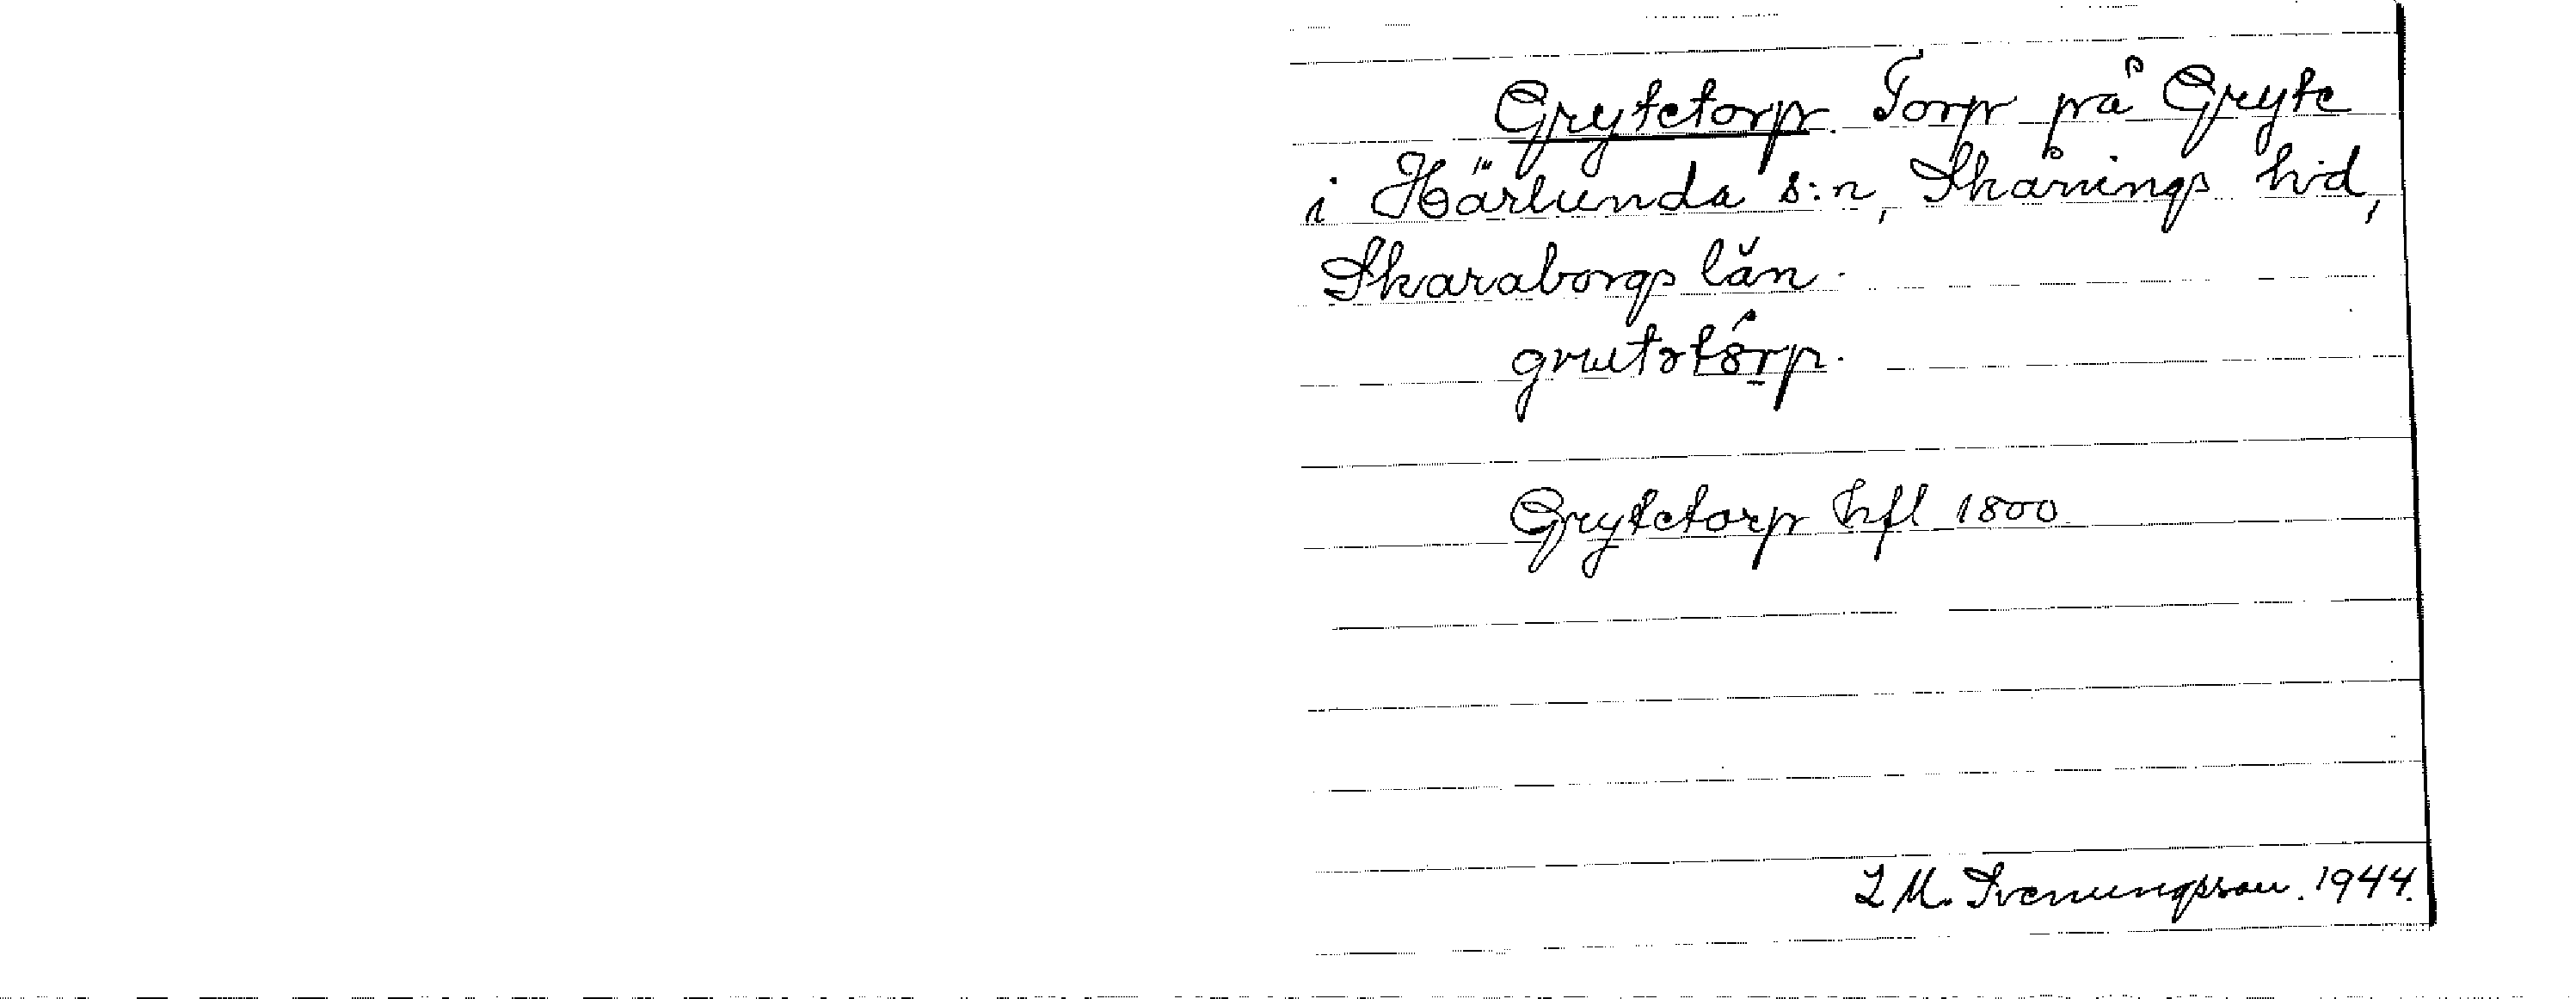 Grytetorp. Torp på Gryte
i Härlunda s:n, Skånings hd,
Skaraborgs län.
Grytetorp hfl 1800
L M. Svenungsson. 1944.